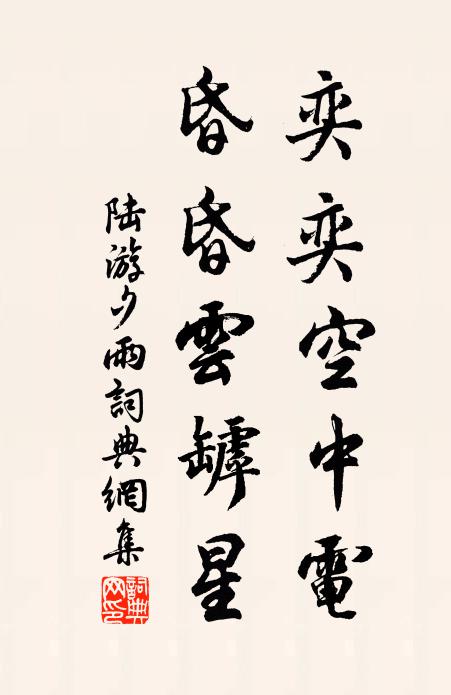 奕奕空中電
昏昏雲罅星
陸游夕雨詞典網集
詞典網印